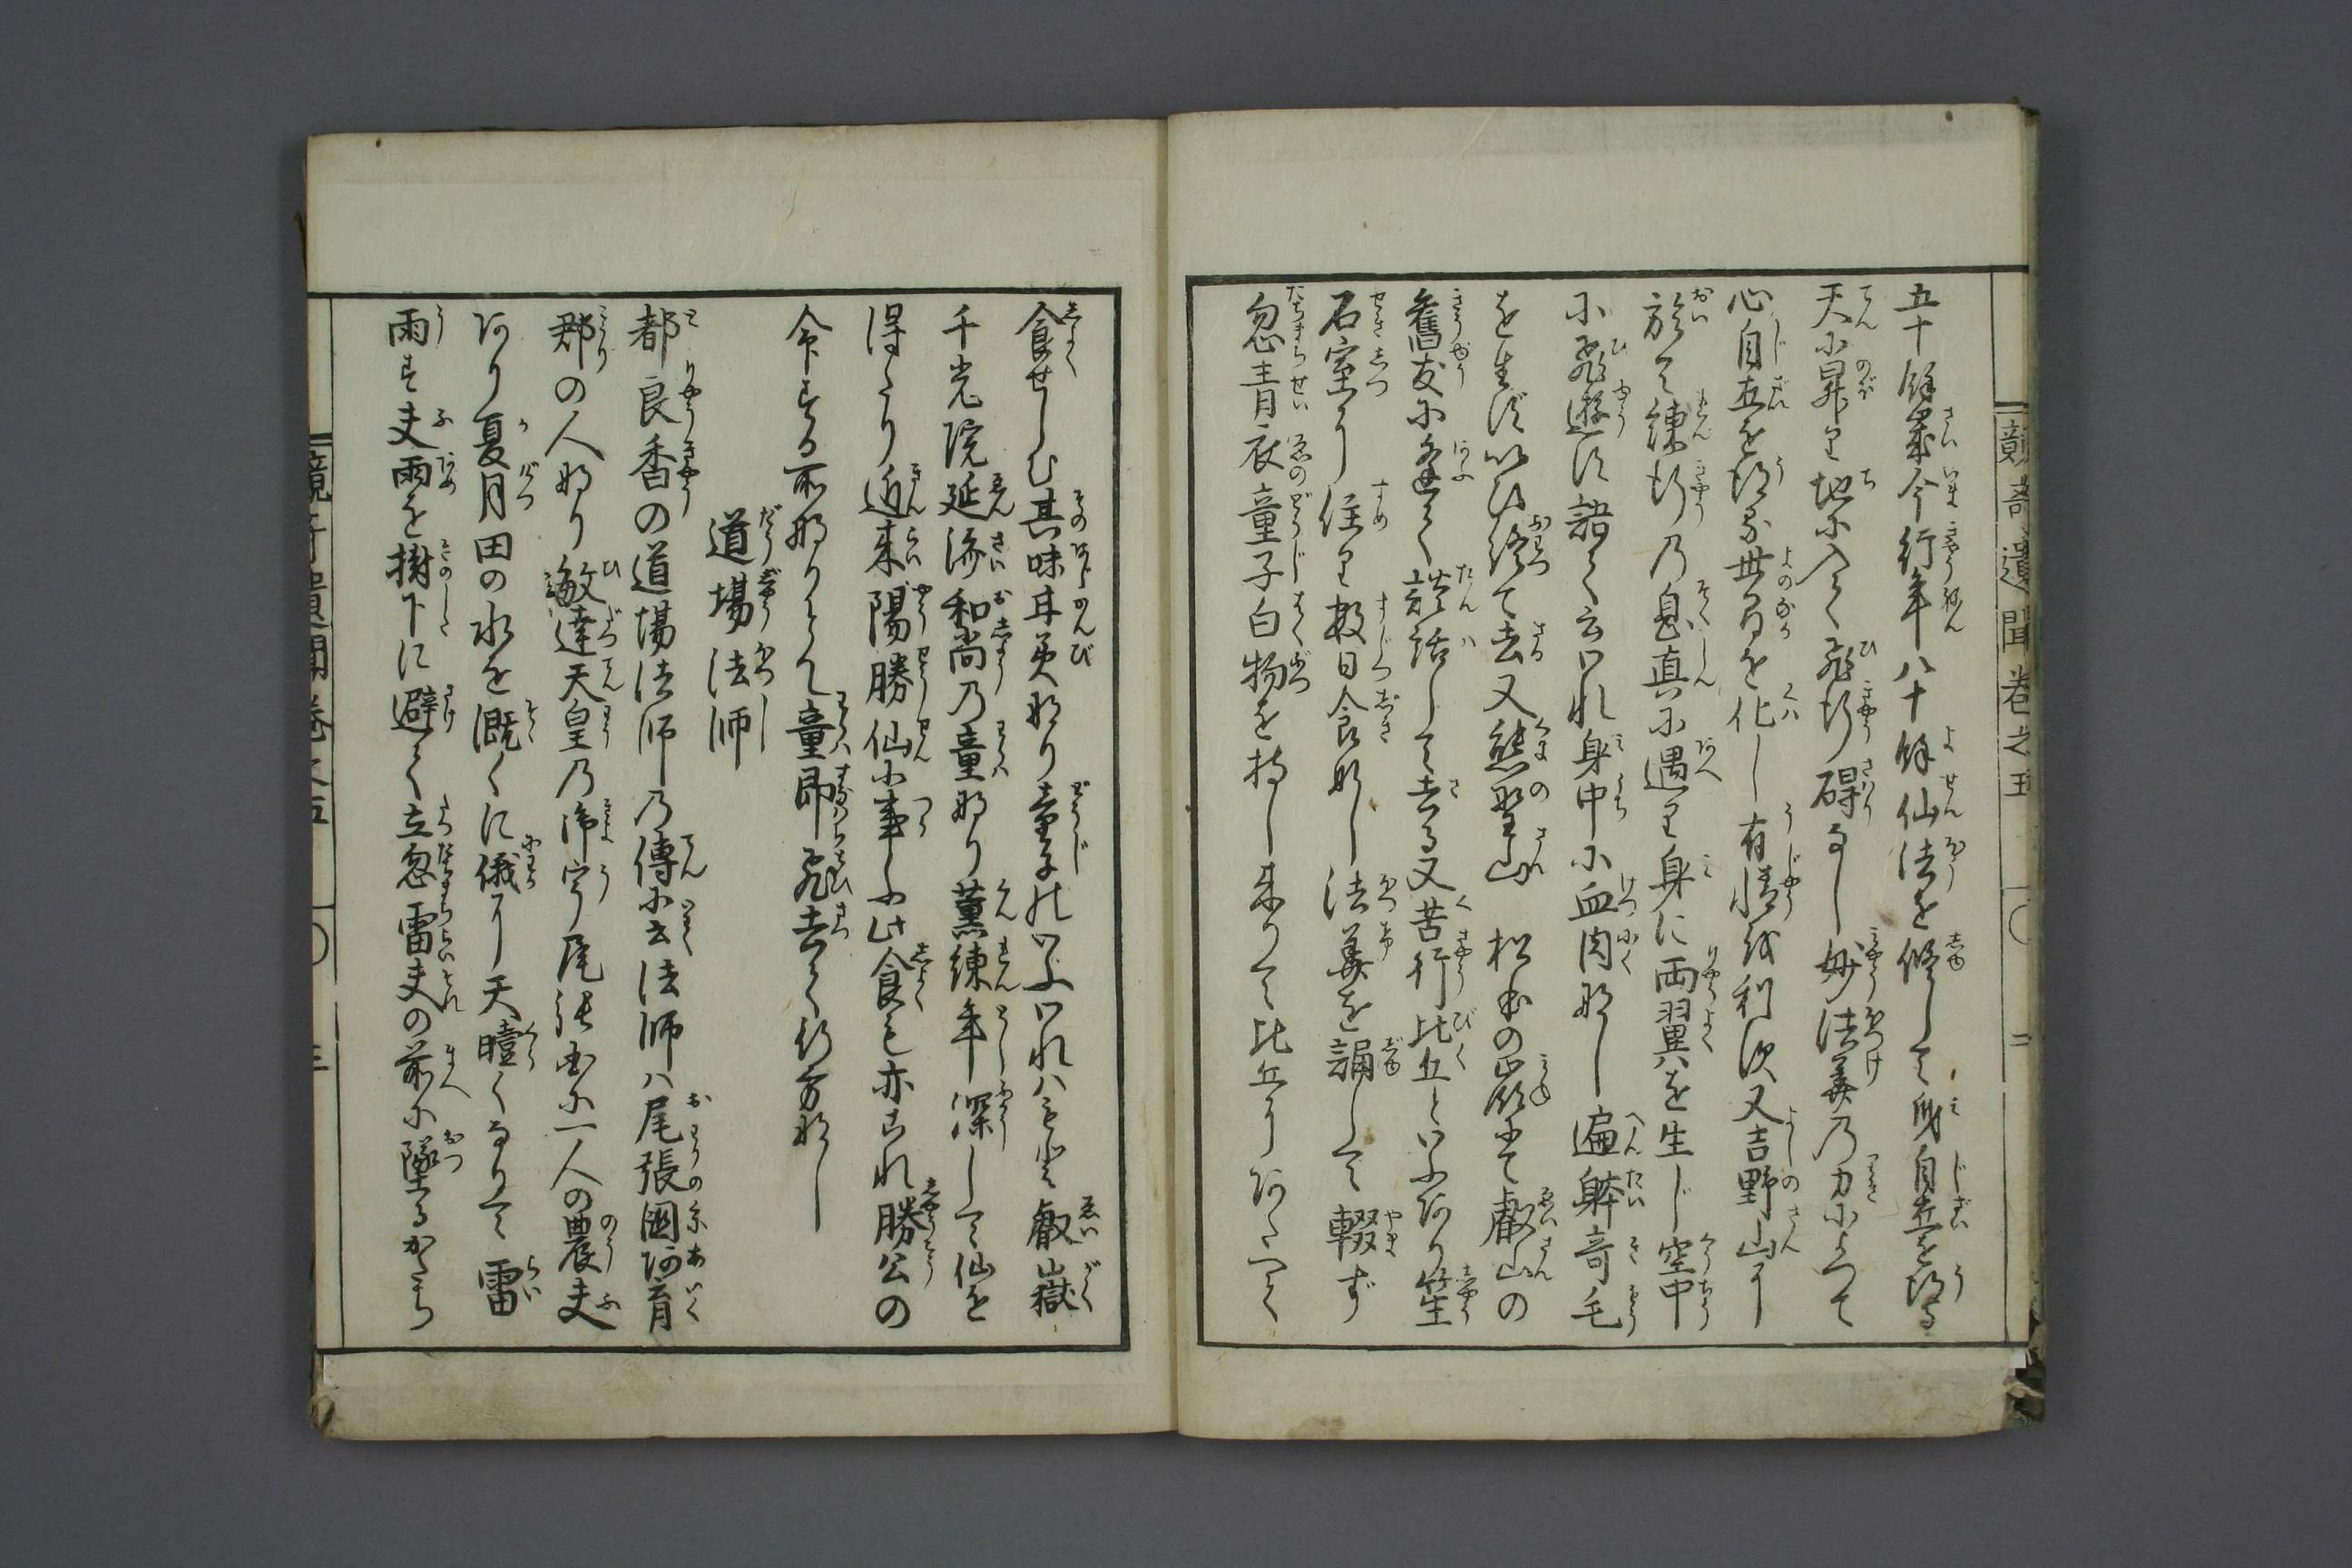 五十餘歳今行年八十餘仙法を脩して身自在を得る
天に昇り地に入て飛行碍なし妙法華乃力によつて
心自在を得る世間を化し有情を利す又吉野山に
於て練行乃息真に遇り身に両翼を生じ空中
に飛遊す語て云われ身中に血肉なし遍躰奇毛
を生ず以ひ終て去又熊野山松本の峯にて叡山の
舊友に逢て談話して去る又苦行比丘といふあり笙
石室に住り数日食なし法華を誦して輟ず
忽青衣童子白物を持し来りて比丘にあたへて
食せしむ其味甘美なり童子のいふわれハもと叡嶽
千光院延済和尚乃童なり薫練年深して仙を
得たり近来陽勝仙に事ふ此食も亦これ勝公の
令する所なりとて童即飛去て行方なし
道場法師
都良香の道場法師乃傳に云法師ハ尾張國阿育
郡の人なり敏達天皇乃御宇尾張国に一人の農夫
あり夏月田の水を漑くに俄に天曀くなりて雷
雨す夫雨を樹下に避て立忽雷夫の前に墜るかたち
競奇遺聞巻之五
二
競奇遺聞巻之五
三